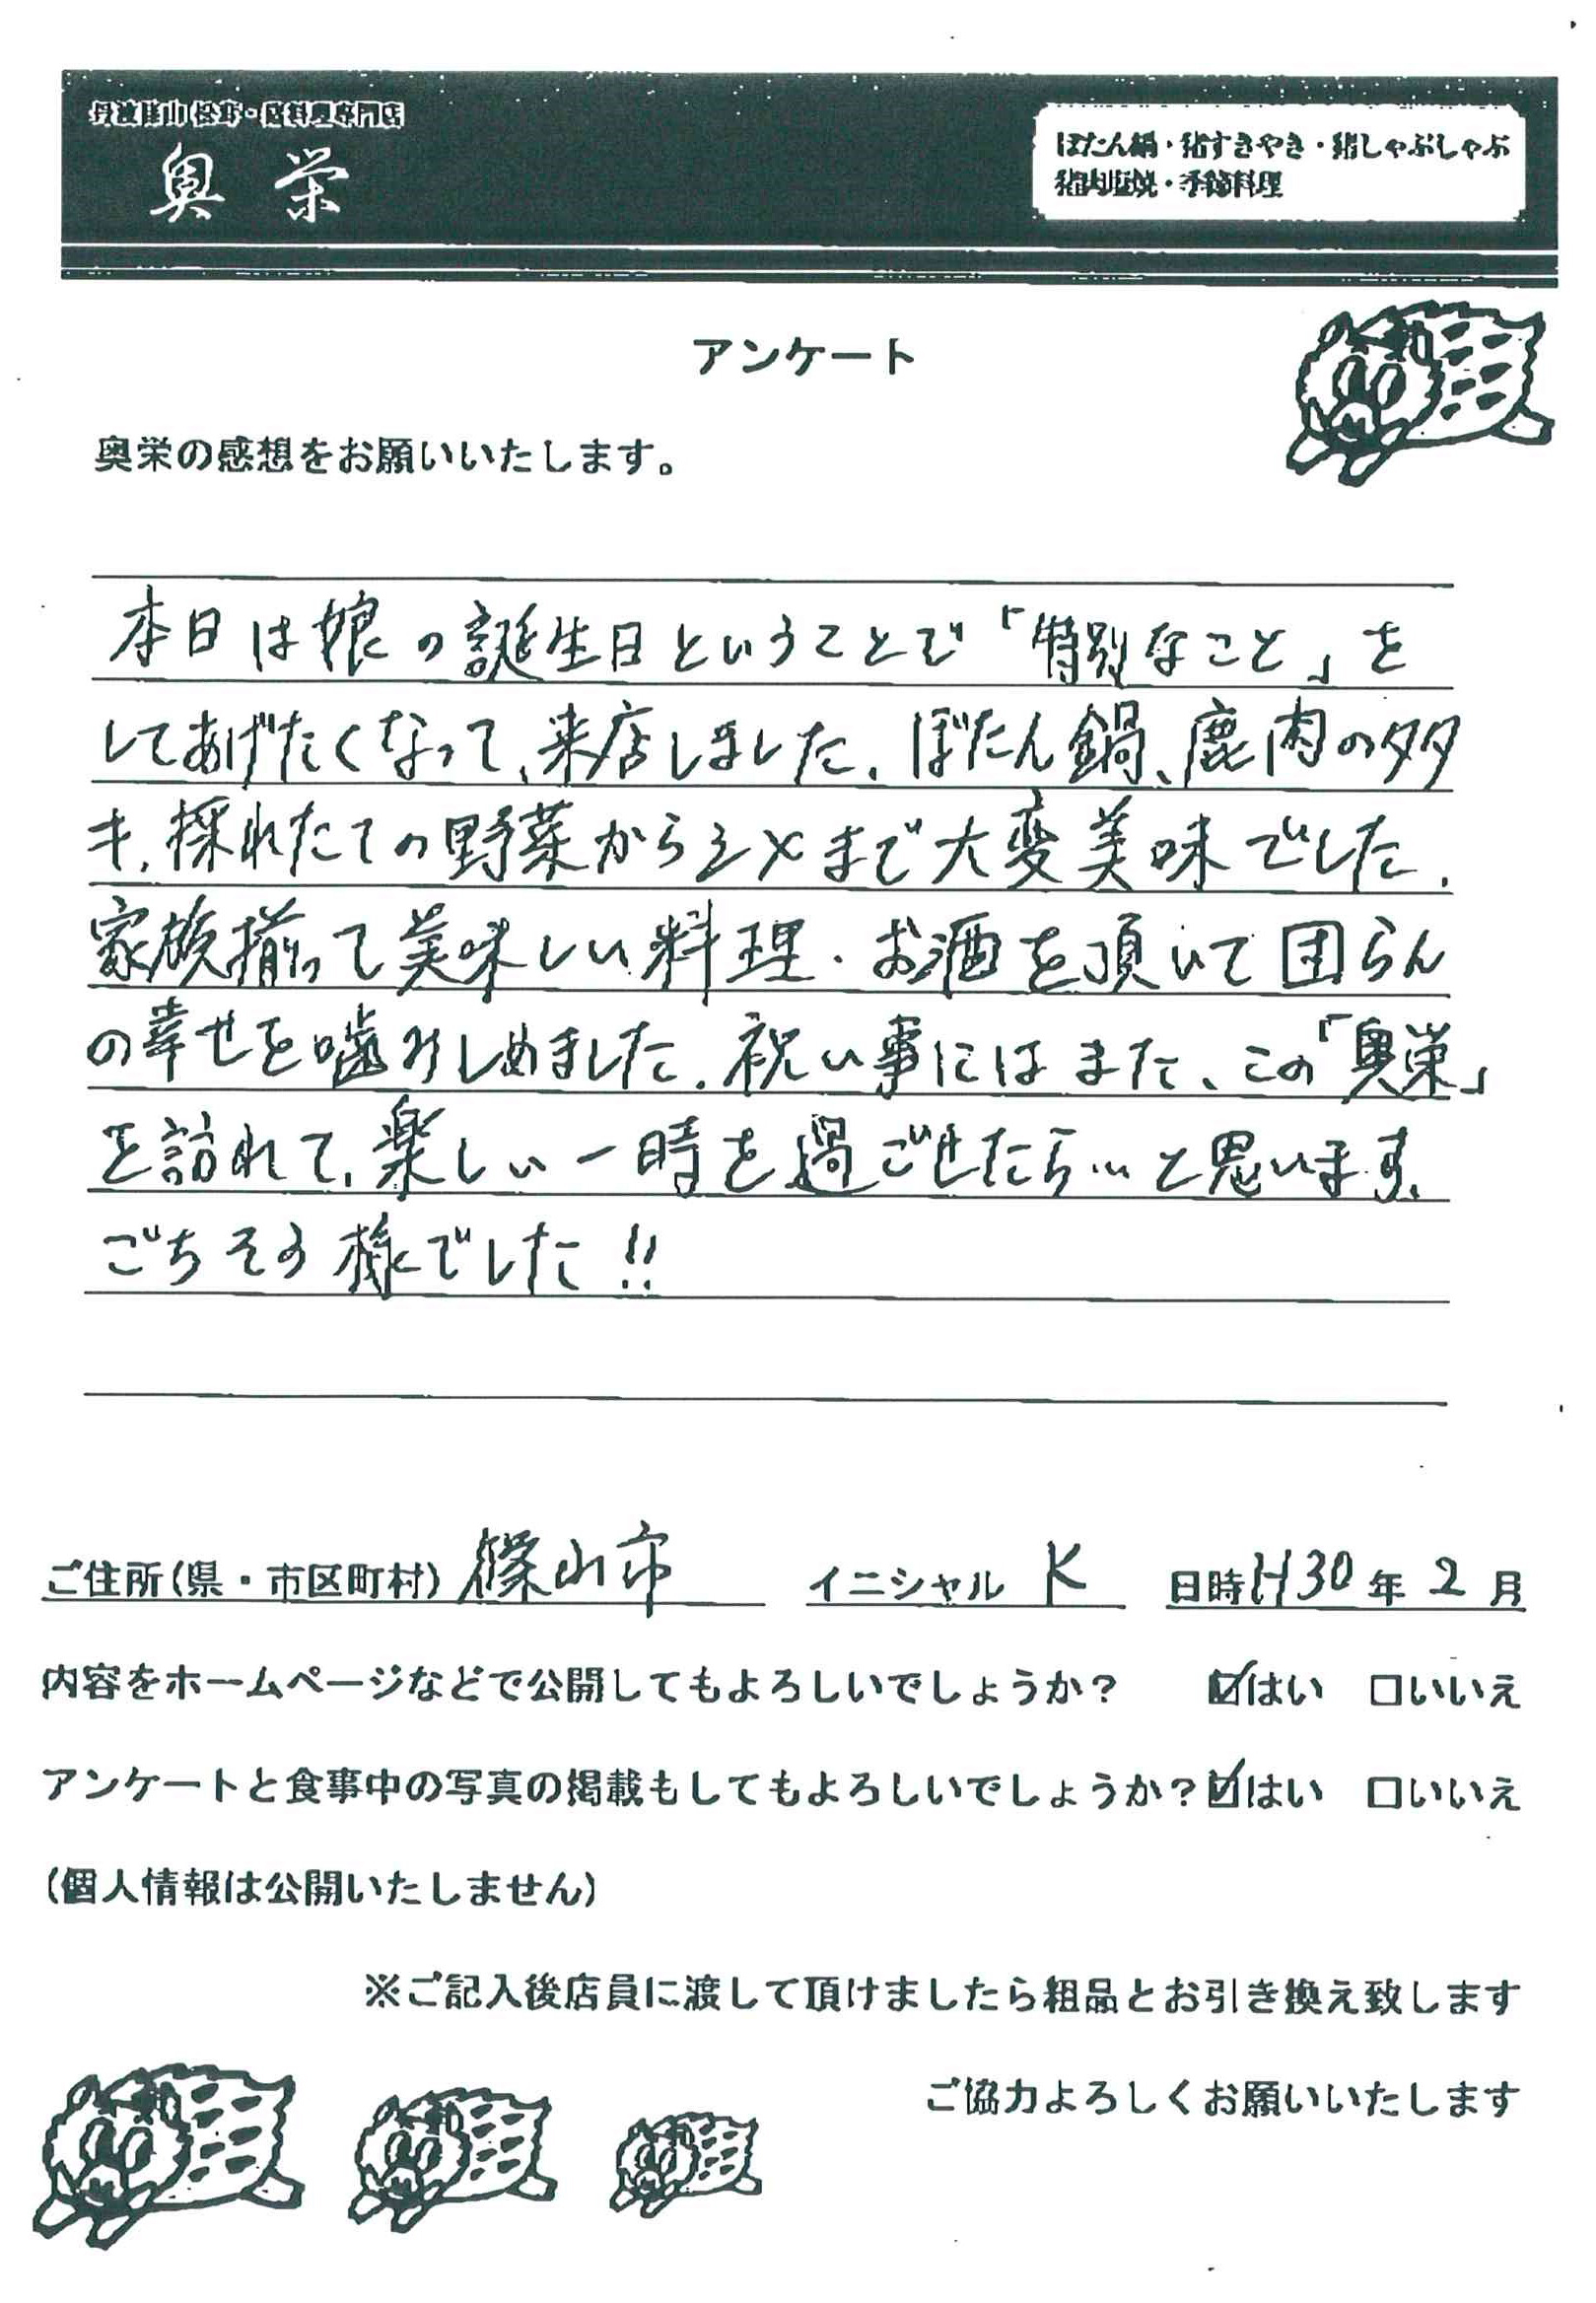 奥栄
ぼたん鍋・猪すきやき・猪しゃぶしゃぶ
猪肉塩焼・季節料理
アンケート
奥栄の感想をお願いいたします。
本日は娘の誕生日ということで「特別なこと」を
してあげたくなって、来店しました。ぼたん鍋、鹿肉のタタ
キ、採れたての野菜からシメまで大変美味でした。
家族揃って美味しい料理・お酒を頂いて団らん
の幸せを噛みしめました。祝い事にはまた、この「奥栄」
を訪れて、楽しい一時を過ごせたらいいと思います。
ごちそう様でした!!
ご住所(県・市区町村) 篠山市 イニシャル K 日時 H30 年 2 月
内容をホームページなどで公開してもよろしいでしょうか? ☑はい □いいえ
アンケートと食事中の写真の掲載もしてもよろしいでしょうか? ☑はい □いいえ
(個人情報は公開いたしません)
※ご記入後店員に渡して頂けましたら粗品とお引き換え致します
ご協力よろしくお願いいたします